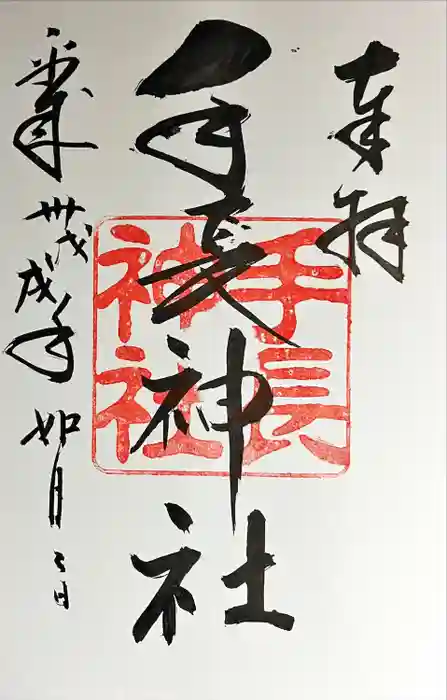 奉拝
手長神社
手長
神社
平成卅戊戌年如月二日